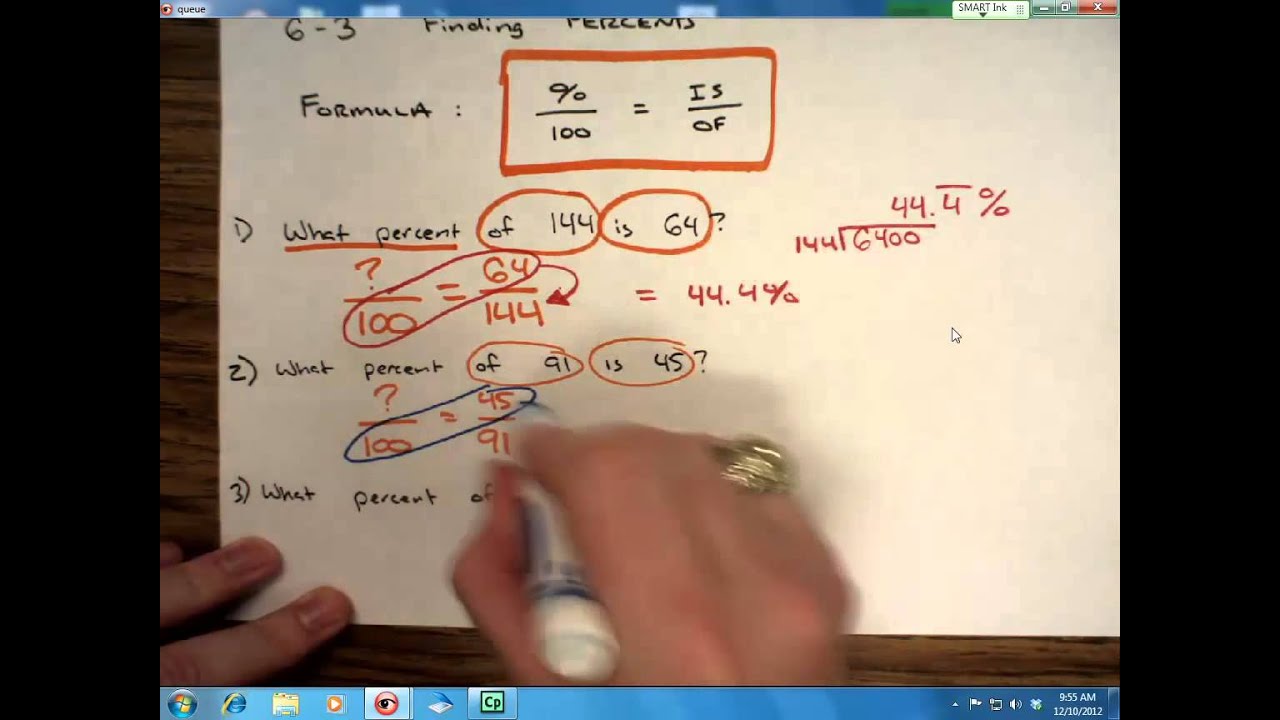 queue
SMART Ink
6-3 Finding PERCENTS
FORMULA : %/100 = IS/OF
1) What percent of 144 is 64?
44.4̅ %
144)6400
?/100 = 64/144 = 44.4%
2) What percent of 91 is 45?
?/100 = 45/91
3) What percent of
Cp
9:55 AM
12/10/2012